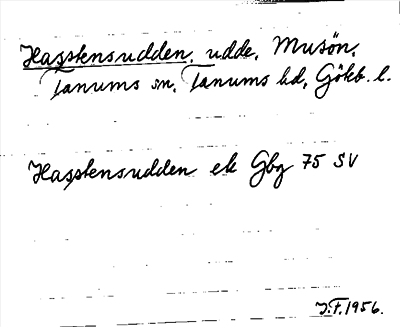 Hasstensudden, udde, Musön,
Tanums sn, Tanums hd, Gökb. l.
Hasstensudden ek Gbg 75 SV
J.F. 1956.